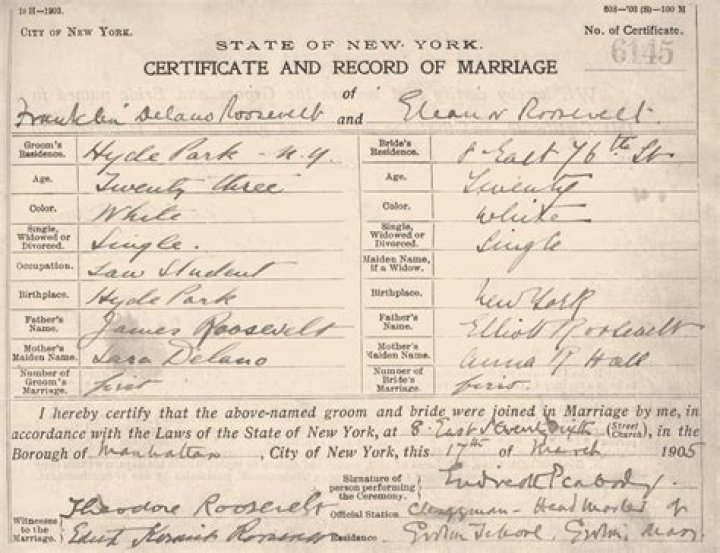 12 H—1903.
608—'03 (B)—100 M
CITY OF NEW YORK.
No. of Certificate.
STATE OF NEW YORK.
6145
CERTIFICATE AND RECORD OF MARRIAGE
of
Franklin Delano Roosevelt and Eleanor Roosevelt.
Groom's Residence. Hyde Park - N.Y. Bride's Residence. 8 East 76th St
Age. Twenty three Age. Twenty
Color. White Color. White
Single, Widowed or Divorced. Single. Single, Widowed or Divorced. Single
Occupation. Law Student Maiden Name, if a Widow.
Birthplace. Hyde Park Birthplace. New York
Father's Name. James Roosevelt Father's Name. Elliott Roosevelt
Mother's Maiden Name. Sara Delano Mother's Maiden Name. Anna R Hall
Number of Groom's Marriage. first Number of Bride's Marriage. first.
I hereby certify that the above-named groom and bride were joined in Marriage by me, in
accordance with the Laws of the State of New York, at 8 East Seventy sixth (Street Church), in the
Borough of Manhattan, City of New York, this 17th of March 1905
Signature of person performing the Ceremony. Endicott Peabody.
Witnesses to the Marriage. Theodore Roosevelt Official Station. Clergyman - Head Master of
Edith Kermit Roosevelt Residence Groton School, Groton, Mass